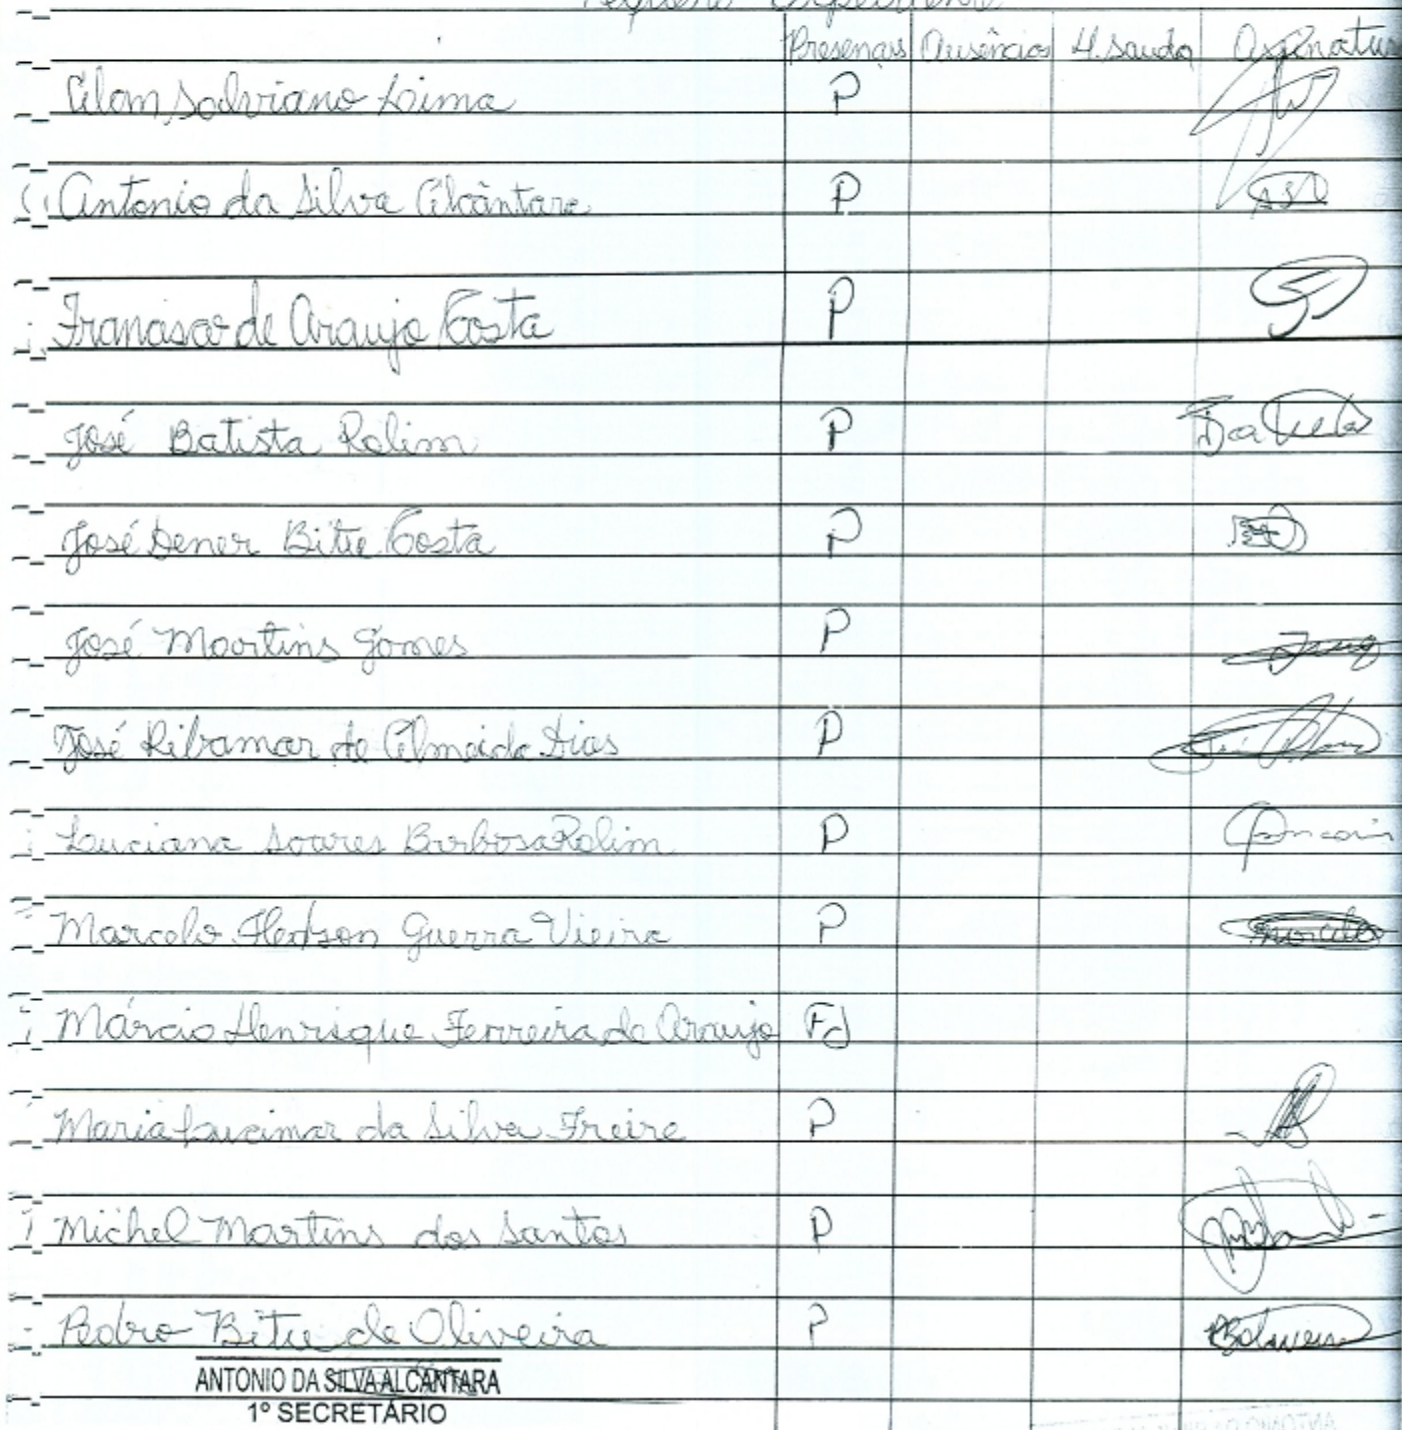 Pequeno Expediente
Presenças Ausências H. sauda Assinatur
Alan Salviano Lima P
Antonio da Silva Alcântara P
Francisco de Araujo Costa P
José Batista Rolim P Batista
José Dener Bitu Costa P
José Martins Gomes P
José Ribamar de Almeida Dias P
Luciana Soares Barbosa Rolim P
Marcelo Hedson Guerra Vieira P Marcelo
Márcio Henrique Ferreira de Araujo FJ
Maria Lucimar da Silva Freire P
Michel Martins dos Santos P
Pedro Bitu de Oliveira P
ANTONIO DA SILVA ALCÂNTARA
1º SECRETÁRIO